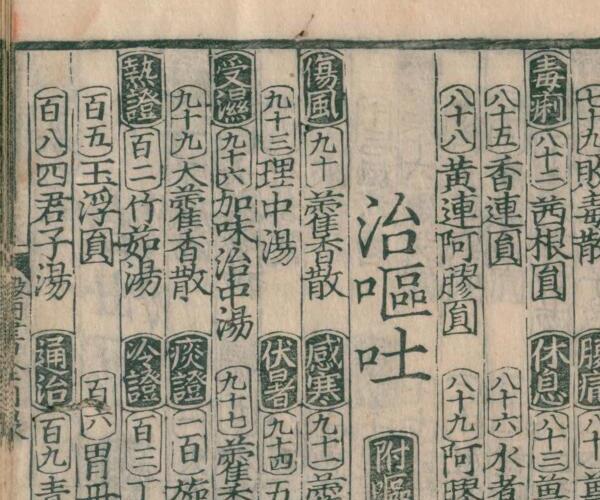 七十九敗毒散 腹痛 八十
毒痢 八十二茜根圓 休息 八十三
八十五香連圓 八十六水煮
八十八黃連阿膠圓 八十九阿膠
治嘔吐 附嘔
傷風 九十藿香散 感寒 九十一藿
九十三理中湯 伏暑 九十四五
受濕 九十六加味治中湯 九十七藿香
九十九大藿香散 痰證 一百
熱證 百二竹茹湯 冷證 百三丁
百五玉浮圓 百六胃丹
百八四君子湯 通治 百九青